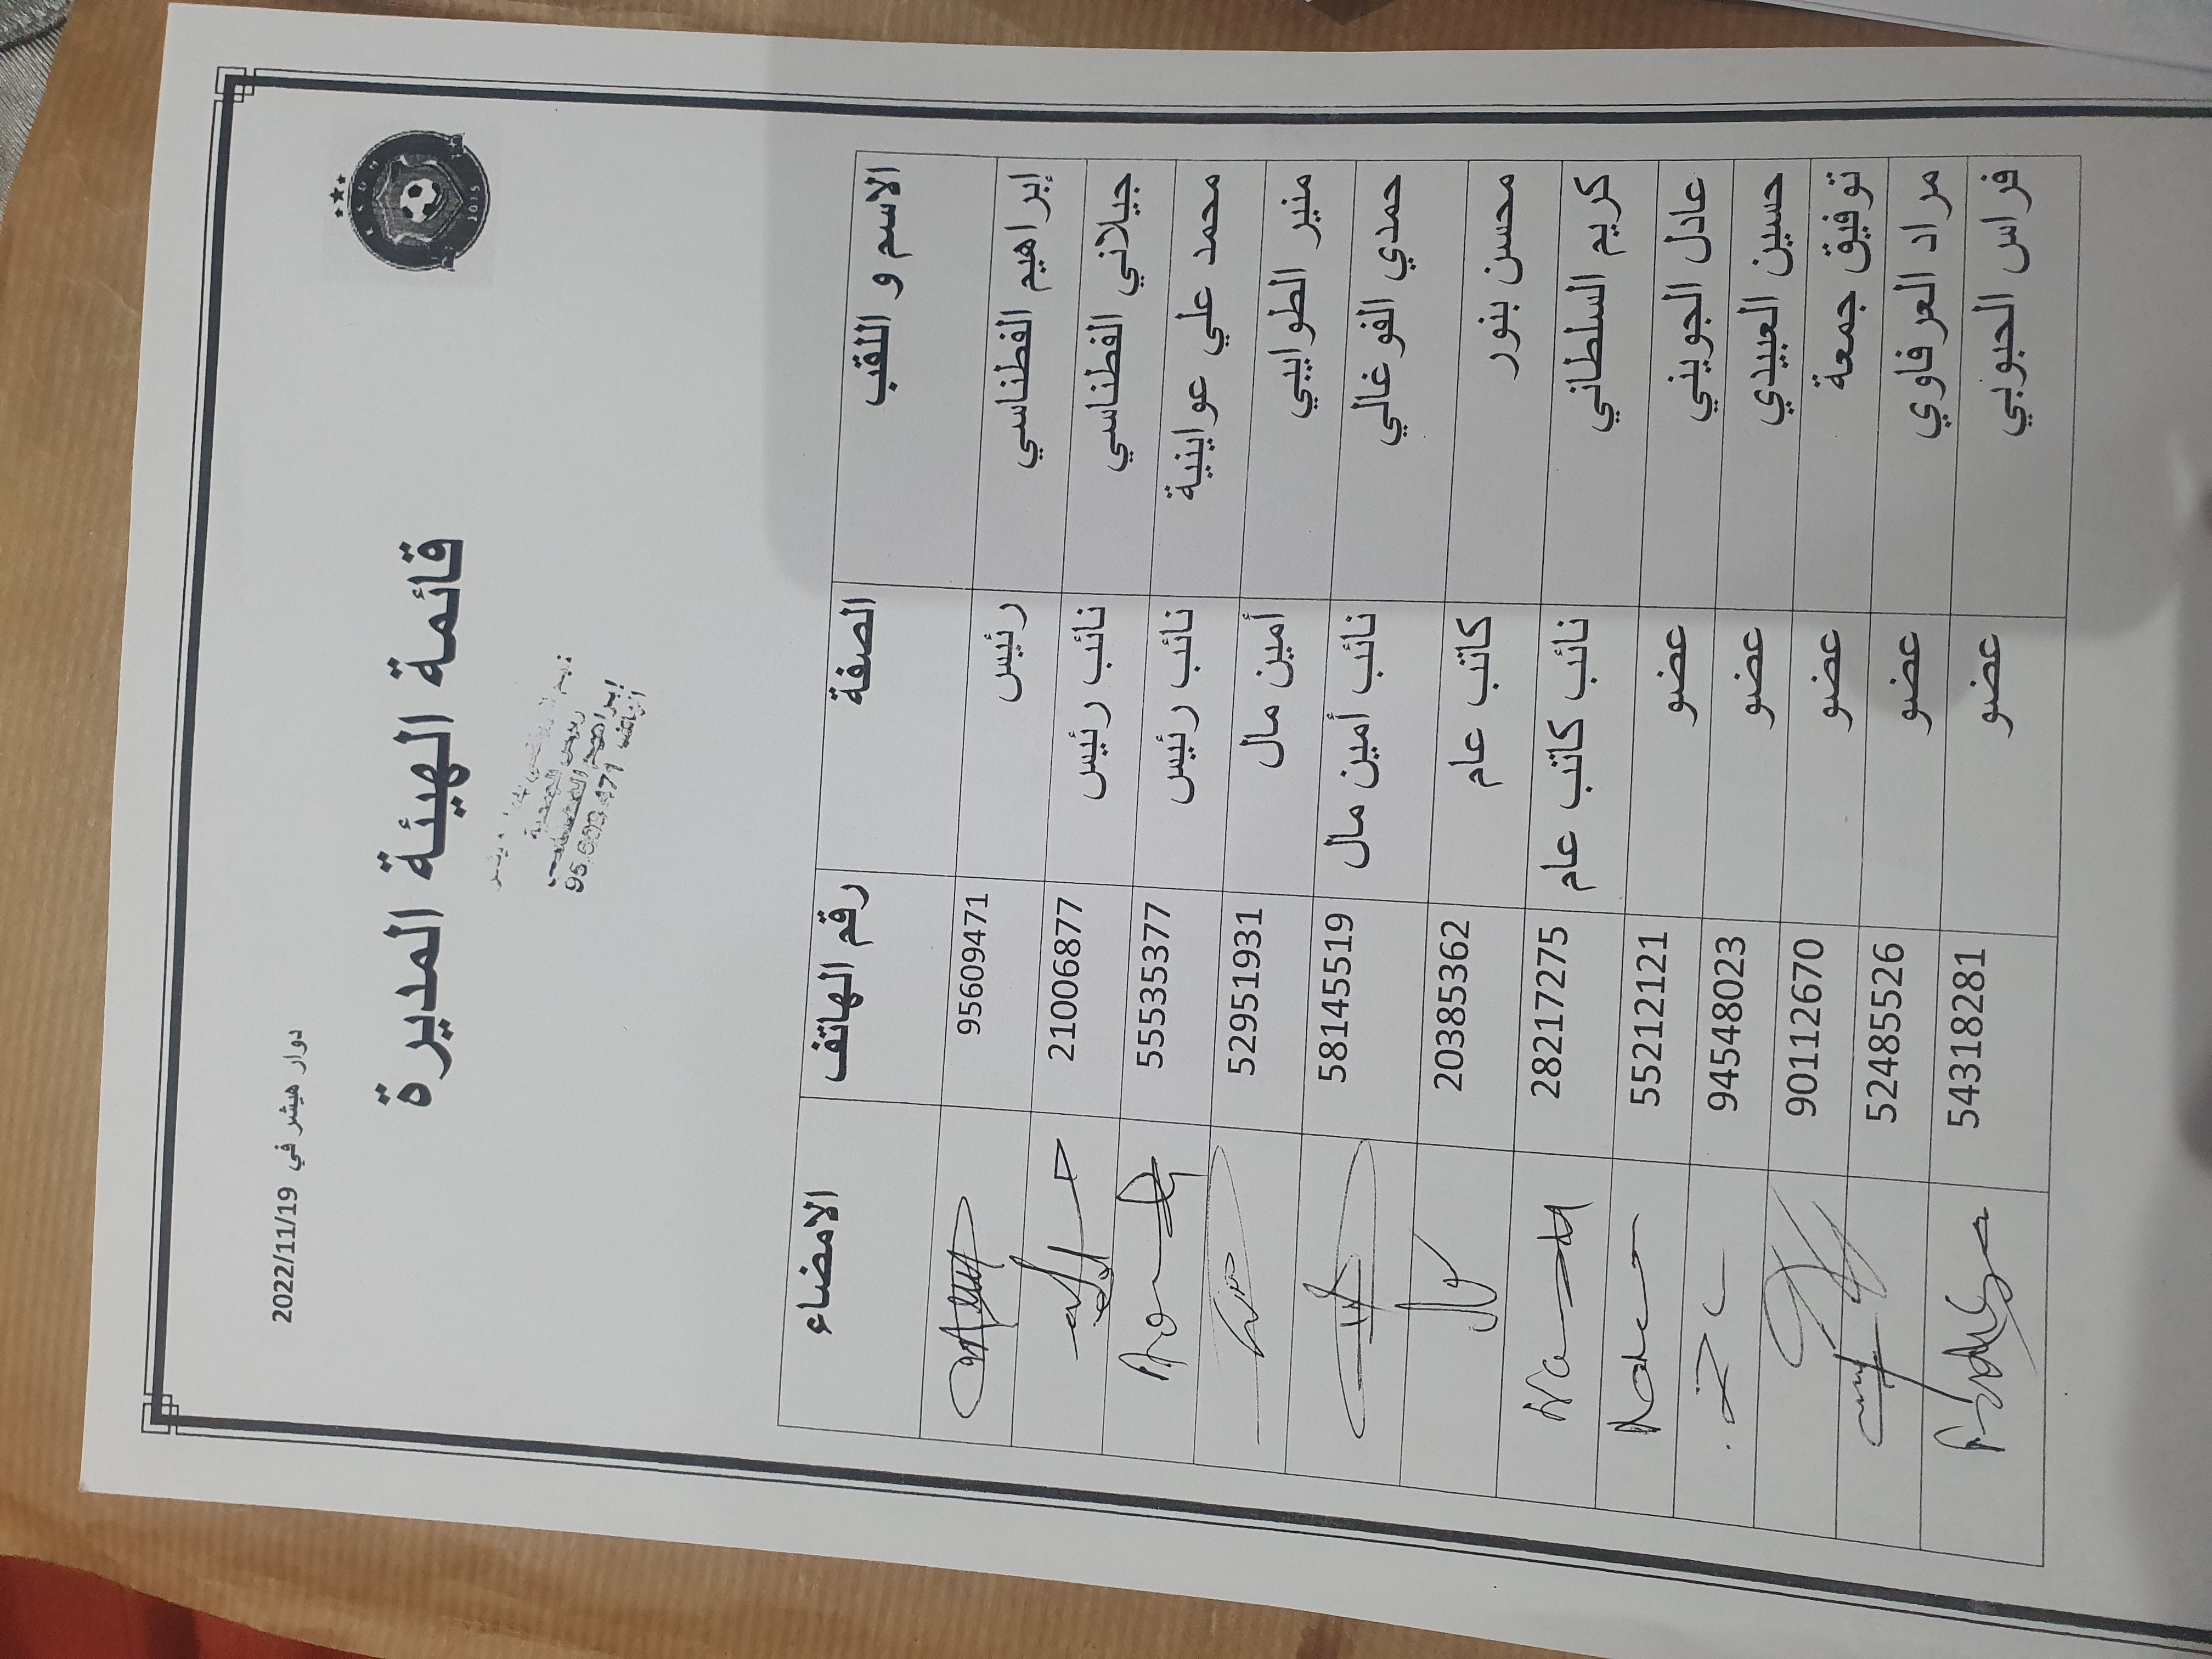 دوار هيشر في 2022/11/19
قائمة الهيئة المديرة
95.609.471
الاسم و اللقب الصفة رقم الهاتف الامضاء
إبراهيم الفطناسي رئيس 95609471
جيلاني الفطناسي نائب رئيس 21006877
محمد علي عواينية نائب رئيس 55535377
منير الطوايبي أمين مال 52951931
حمدي الفوغالي نائب أمين مال 58145519
محسن بنور كاتب عام 20385362
كريم السلطاني نائب كاتب عام 28217275
عادل الجويني عضو 55212121
حسين العبيدي عضو 94548023
توفيق جمعة عضو 90112670
مراد العرفاوي عضو 52485526
فراس الحبوبي عضو 54318281